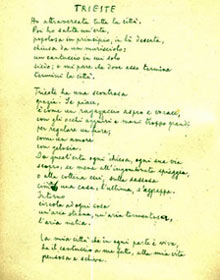 TRIESTE
Ho attraversato tutta la città.
Poi ho salita un'erta,
popolosa in principio, in là deserta,
chiusa da un muricciolo:
un cantuccio in cui solo
siedo; e mi pare che dove esso termina
termini la città.
Trieste ha una scontrosa
grazia. Se piace,
è come un ragazzaccio aspro e vorace,
con gli occhi azzurri e mani troppo grandi
per regalare un fiore;
come un amore
con gelosia.
Da quest'erta ogni chiesa, ogni sua via
scopro, se mena all'ingombrata spiaggia,
o alla collina cui, sulla sassosa
cima, una casa, l'ultima, s'aggrappa.
Intorno
circola ad ogni cosa
un'aria strana, un'aria tormentosa,
l'aria natia.
La mia città che in ogni parte è viva,
ha il cantuccio a me fatto, alla mia vita
pensosa e schiva.